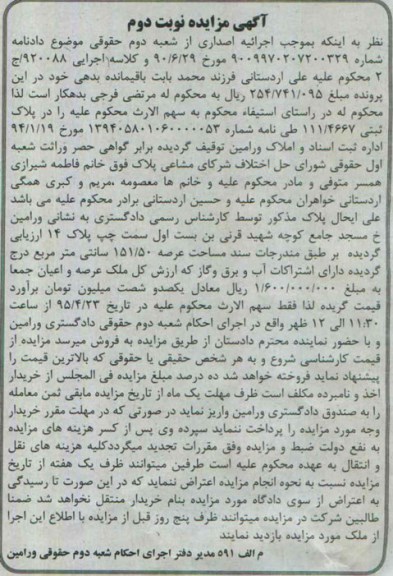 آگهی مزایده نوبت دوم
نظر به اینکه بموجب اجرائیه اصداری از شعبه دوم حقوقی موضوع دادنامه
شماره ۹۰۰۹۹۷۰۲۰۷۲۰۰۳۲۹ مورخ ۹۰/۶/۲۹ و کلاسه اجرایی ۹۲۰۰۸۸/ج
۲ محکوم علیه علی اردستانی فرزند محمد بابت باقیمانده بدهی خود در این
پرونده مبلغ ۲۵۴/۷۴۱/۰۹۵ ریال به محکوم له مرتضی فرجی بدهکار است لذا
محکوم له در راستای استیفاء محکوم به سهم الارث محکوم علیه را در پلاک
ثبتی ۱۱۱/۴۶۶۷ طی نامه شماره ۱۳۹۴۰۵۸۰۱۰۶۰۰۰۰۰۵۳ مورخ ۹۴/۱/۱۹
اداره ثبت اسناد و املاک ورامین توقیف گردیده برابر گواهی حصر وراثت شعبه
اول حقوقی شورای حل اختلاف شرکای مشاعی پلاک فوق خانم فاطمه شیرازی
همسر متوفی و مادر محکوم علیه و خانم ها معصومه ،مریم و کبری همگی
اردستانی خواهران محکوم علیه و حسین اردستانی برادر محکوم علیه می باشد
علی ایحال پلاک مذکور توسط کارشناس رسمی دادگستری به نشانی ورامین
خ مسجد جامع کوچه شهید قرنی بن بست اول سمت چپ پلاک ۱۴ ارزیابی
گردیده بر طبق مندرجات سند مساحت عرصه ۱۵۱/۵۰ سانتی متر مربع درج
گردیده دارای اشتراکات آب و برق وگاز که ارزش کل ملک عرصه و اعیان جمعا
به مبلغ ۱/۶۰۰/۰۰۰/۰۰۰ ریال معادل یکصدو شصت میلیون تومان برآورد
قیمت گریده لذا فقط سهم الارث محکوم علیه در تاریخ ۹۵/۴/۲۳ از ساعت
۱۱:۳۰ الی ۱۲ ظهر واقع در اجرای احکام شعبه دوم حقوقی دادگستری ورامین
و با حضور نماینده محترم دادستان از طریق مزایده به فروش میرسد مزایده از
قیمت کارشناسی شروع و به هر شخص حقیقی یا حقوقی که بالاترین قیمت را
پیشنهاد نماید فروخته خواهد شد ده درصد مبلغ مزایده فی المجلس از خریدار
اخذ و نامبرده مکلف است ظرف مهلت یک ماه از تاریخ مزایده مابقی ثمن معامله
را به صندوق دادگستری ورامین واریز نماید در صورتی که در مهلت مقرر خریدار
وجه مورد مزایده را پرداخت ننماید سپرده وی پس از کسر هزینه های مزایده
به نفع دولت ضبط و مزایده وفق مقررات تجدید میگرددکلیه هزینه های نقل
و انتقال به عهده محکوم علیه است طرفین میتوانند ظرف یک هفته از تاریخ
مزایده نسبت به نحوه انجام مزایده اعتراض ننماید که در این صورت تا رسیدگی
به اعتراض از سوی دادگاه مورد مزایده بنام خریدار منتقل نخواهد شد ضمنا
طالبین شرکت در مزایده میتوانند ظرف پنج روز قبل از مزایده با اطلاع این اجرا
از ملک مورد مزایده بازدید نمایند
م الف ۵۹۱ مدیر دفتر اجرای احکام شعبه دوم حقوقی ورامین